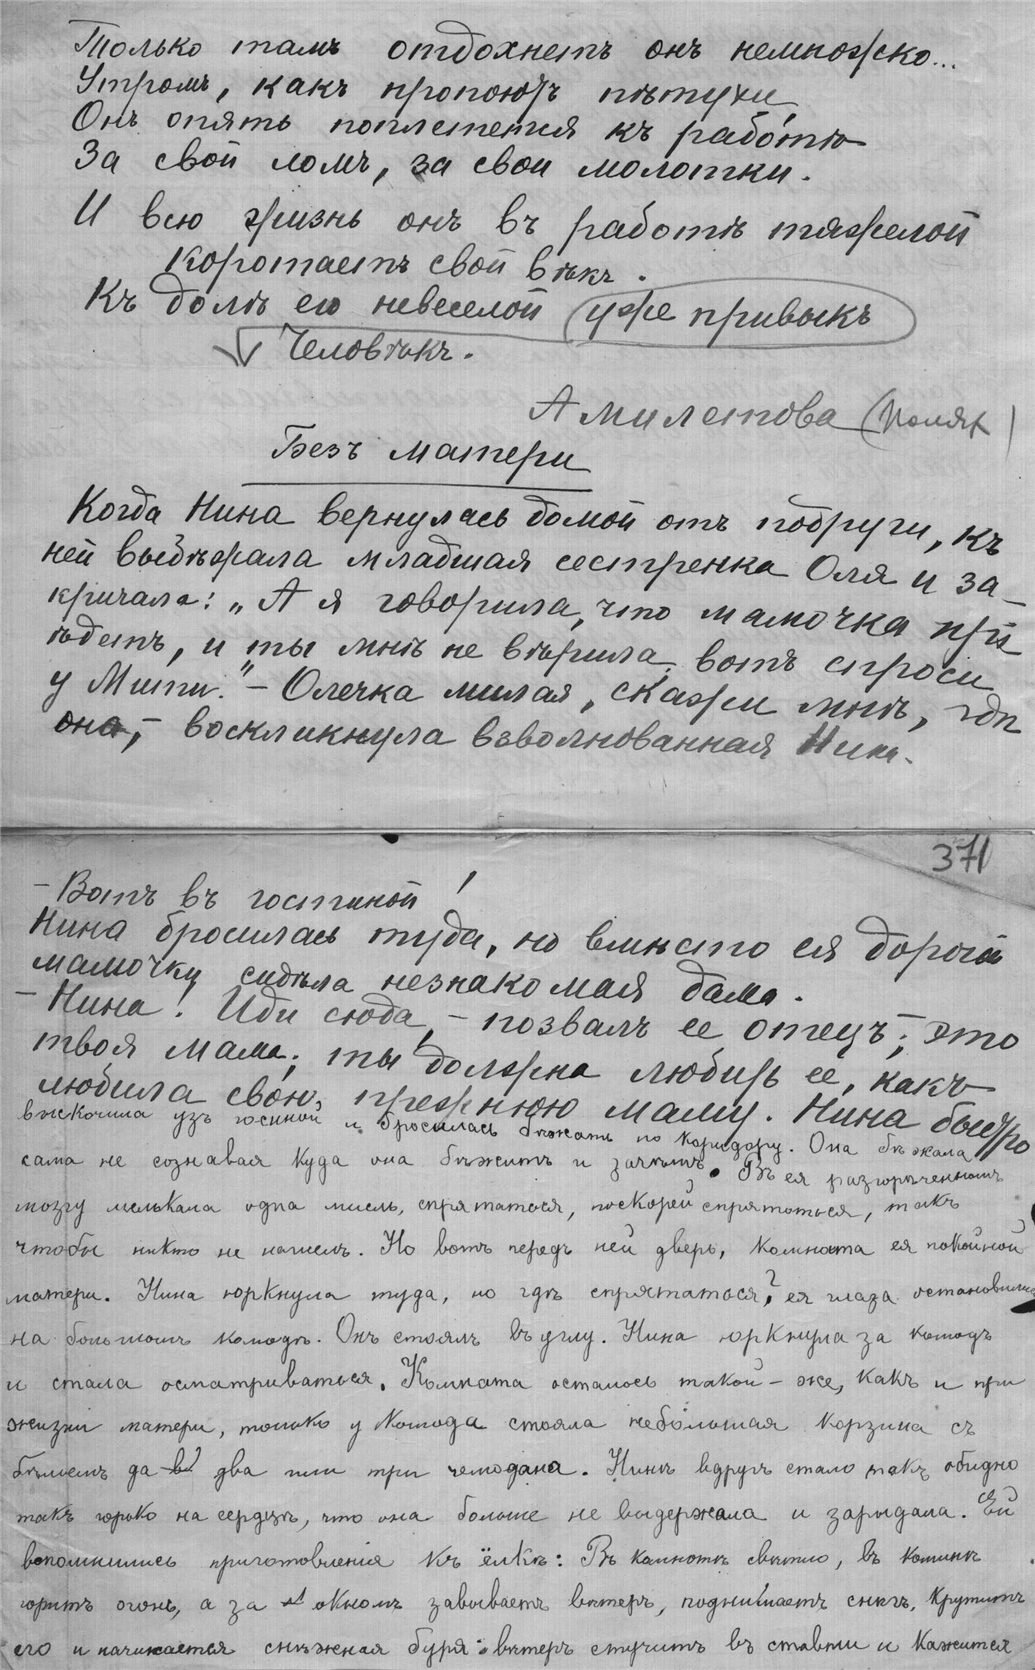 Только тамъ отдохнетъ онъ немножко...
Утромъ, какъ пропоютъ пѣтухи
Онъ опять поплетется къ работѣ
За свой ломъ, за свои молотки.
И всю жизнь онъ въ работѣ тяжелой
Коротаетъ свой вѣкъ.
Къ долѣ его невеселой уже привыкъ
Человѣкъ.
А милетова
Безъ матери
Когда Нина вернулась домой отъ подруги, къ
ней выбѣжала младшая сестренка Оля и за-
кричала: „А я говорила, что мамочка прі
ѣдетъ, и ты мнѣ не вѣрила, вотъ спроси
у Мити." – Олечка милая, скажи мнѣ, гдѣ
она, – воскликнула взволнованная Нина.
371
– Вотъ въ гостиной!
Нина бросилась туда, но вмѣсто ея дорогой
мамочки сидѣла незнакомая дама.
– Нина! Иди сюда, – позвалъ ее отецъ; – это
твоя мама; ты должна любить ее, какъ
любила свою прежнюю маму. Нина быстро
выскочила узъ гостиной и бросилась бѣжать по коридору. Она бѣжала
сама не сознавая куда она бѣжитъ и зачѣмъ. Въ ея разгоряченномъ
мозгу мелькала одна мысль, спрятаться, поскорей спрятаться, такъ
чтобы никто не нашелъ. Но вотъ передъ ней дверь, комната ея покойной
матери. Нина юркнула туда, но гдѣ спрятаться? ея глаза остановились
на большомъ комодѣ. Онъ стоялъ въ углу. Нина юркнула за комодъ
и стала осматриваться. Комната осталось такой – же, какъ и при
жизни матери, только у комода стояла небольшая корзина съ
бѣльемъ да два или три чемодана. Нинѣ вдругъ стало такъ обидно
такъ горько на сердцѣ, что она больше не выдержала и зарыдала. Ей
вспомнились приготовленія къ ёлкѣ: Въ комнатѣ свѣтло, въ каминѣ
горитъ огонь, а за окномъ завываетъ вѣтеръ, поднимаетъ снѣгъ, крутитъ
его и начинается снѣжная буря: вѣтеръ стучитъ въ ставни и кажится